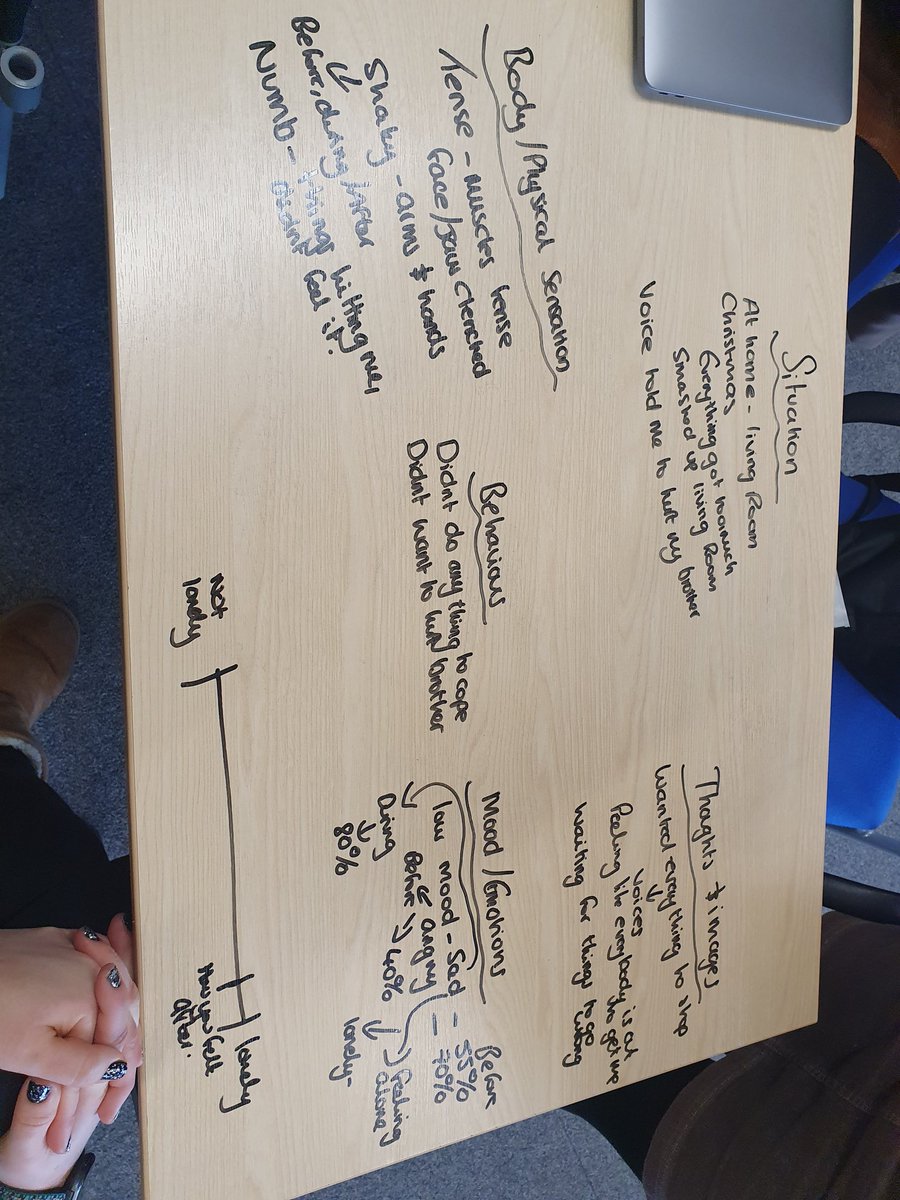 Situation
At home - living Room
Christmas
Everything got toomuch
Smashed up living Room
Voice told me to hurt my brother
Body/Physical Sensation
Tense - muscles tense
face/jaw clenched
Shaky - arms & hands
Before, during/after
Numb - things hitting me,
didnt feel it.
Behaviours
Didnt do anything to cope
Didnt want to hurt brother
Thoughts & images
Wanted everything to stop
Voices
Feeling like everybody is out
to get me
waiting for things to go
wrong
Mood/Emotions
Before
low mood - Sad = 55%
angry = 70%
Before 40%
During
80%
lonely-
Feeling
alone
Not
lonely
lonely
How you feel
after.